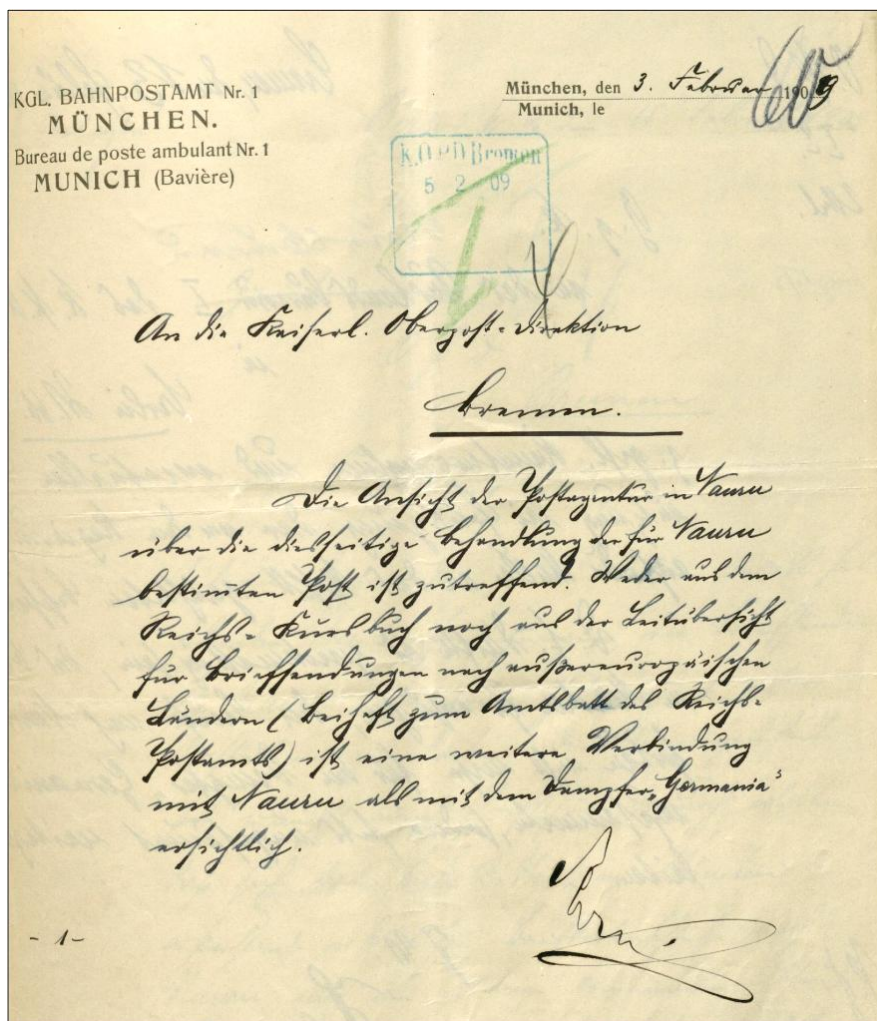 KGL. BAHNPOSTAMT Nr. 1
MÜNCHEN.
Bureau de poste ambulant Nr. 1
MUNICH (Bavière)
München, den 3. Februar 1909
Munich, le
K.O.P.D Bremen
5 2 09
An die Kaiserl. Oberpost-Direktion
Bremen.
Die Ansicht der Postagentur in Nauru
über die diesseitige Behandlung der für Nauru
bestimten Post ist zutreffend. Weder aus dem
Reichs-Kursbuch noch aus der Leitübersicht
für Briefsendungen nach außereuropäischen
Ländern (Beiheft zum Amtsblatt des Reichs-
Postamts) ist eine weitere Verbindung
mit Nauru als mit dem Dampfer „Germania“
ersichtlich.
- 1 -